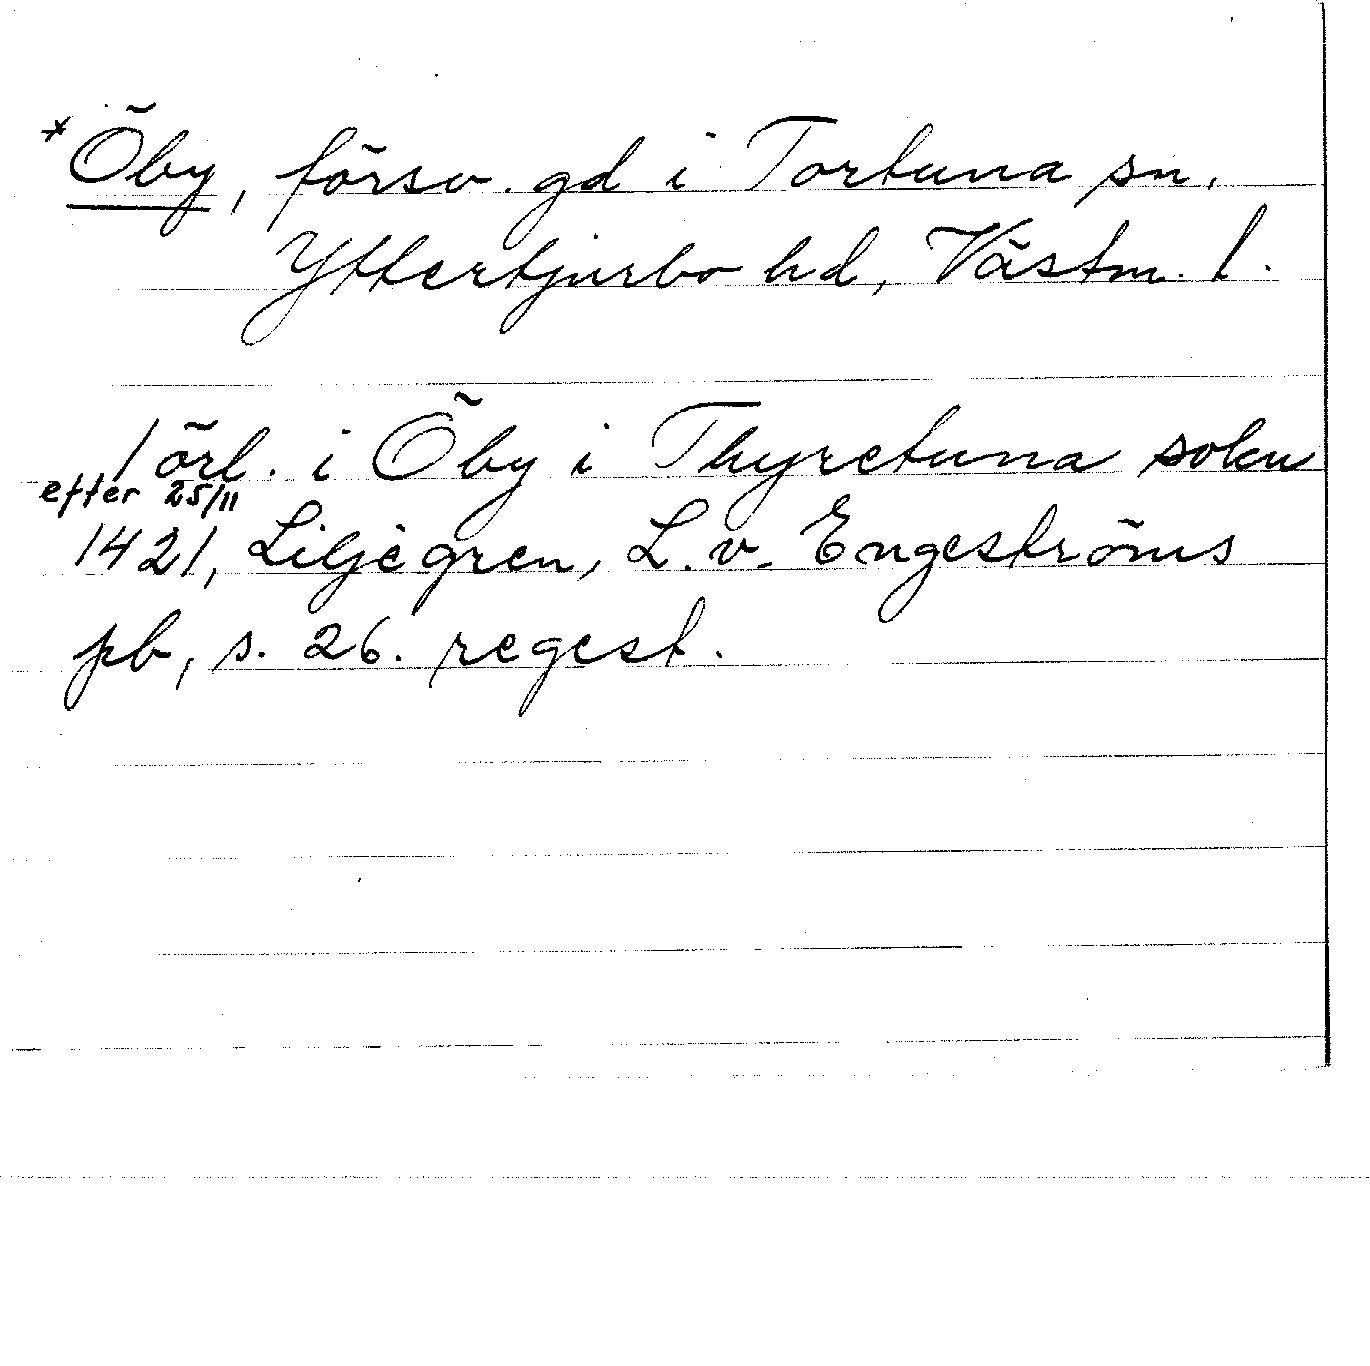 *Öby, försv. gd i Tortuna sn,
Yttertjurbo hd, Västm. l.
1 örl. i Öby i Thyretuna sokn
efter 25/11
1421, Liljegren, L. v. Engeströms
pb, s. 26. regest.